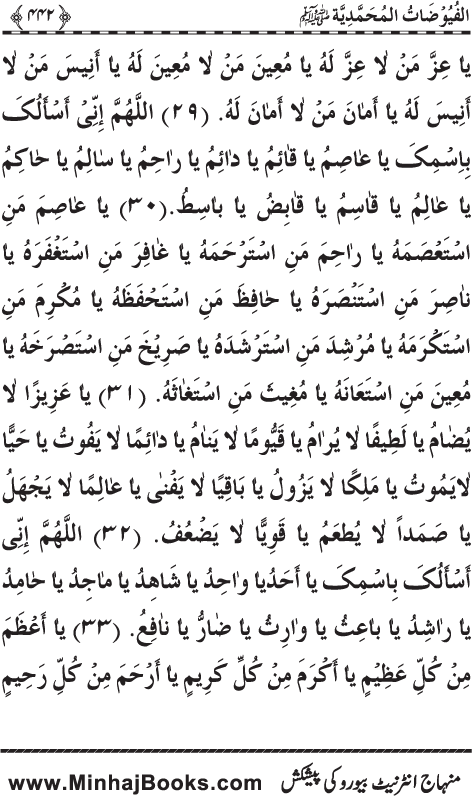 الفُيُوْضَاتُ المُحَمَّدِيَّة ﷺ ﴿۴۴۲﴾
يا عِزَّ مَنْ لا عِزَّ لَهُ يا مُعِينَ مَنْ لا مُعِينَ لَهُ يا أَنِيسَ مَنْ لا
أَنِيسَ لَهُ يا أَمانَ مَنْ لا أَمانَ لَهُ. (٢٩) اللَّهُمَّ إِنِّىْ أَسْأَلُكَ
بِاِسْمِكَ يا عاصِمُ يا قائِمُ يا دائِمُ يا راحِمُ يا سالِمُ يا حاكِمُ
يا عالِمُ يا قاسِمُ يا قابِضُ يا باسِطُ.(٣٠) يا عاصِمَ مَنِ
اسْتَعْصَمَهُ يا راحِمَ مَنِ اسْتَرْحَمَهُ يا غافِرَ مَنِ اسْتَغْفَرَهُ يا
ناصِرَ مَنِ اسْتَنْصَرَهُ يا حافِظَ مَنِ اسْتَحْفَظَهُ يا مُكْرِمَ مَنِ
اسْتَكْرَمَهُ يا مُرْشِدَ مَنِ اسْتَرْشَدَهُ يا صَرِيْخَ مَنِ اسْتَصْرَخَهُ يا
مُعِينَ مَنِ اسْتَعَانَهُ يا مُغِيثَ مَنِ اسْتَغاثَهُ. (٣١) يا عَزِيزًا لا
يُضامُ يا لَطِيفًا لا يُرامُ يا قَيُّومًا لا يَنامُ يا دائِمًا لا يَفُوتُ يا حَيًّا
لايَمُوتُ يا مَلِكًا لا يَزُولُ يا باقِيًا لا يَفْنى يا عالِمًا لا يَجْهَلُ
يا صَمَداً لا يُطعَمُ يا قَوِيًّا لا يَضْعُفُ. (٣٢) اللَّهُمَّ إِنِّى
أَسْأَلُكَ بِاسْمِكَ يا أَحَدُيا واحِدُ يا شَاهِدُ يا ماجِدُ يا حامِدُ
يا راشِدُ يا باعِثُ يا وارِثُ يا ضارُّ يا نافِعُ. (٣٣) يا أَعْظَمَ
مِنْ كُلِّ عَظِيْمٍ يا أَكْرَمَ مِنْ كُلِّ كَرِيمٍ يا أَرْحَمَ مِنْ كُلِّ رَحِيمٍ
منہاج انٹرنیٹ بیورو کی پیشکش www.MinhajBooks.com